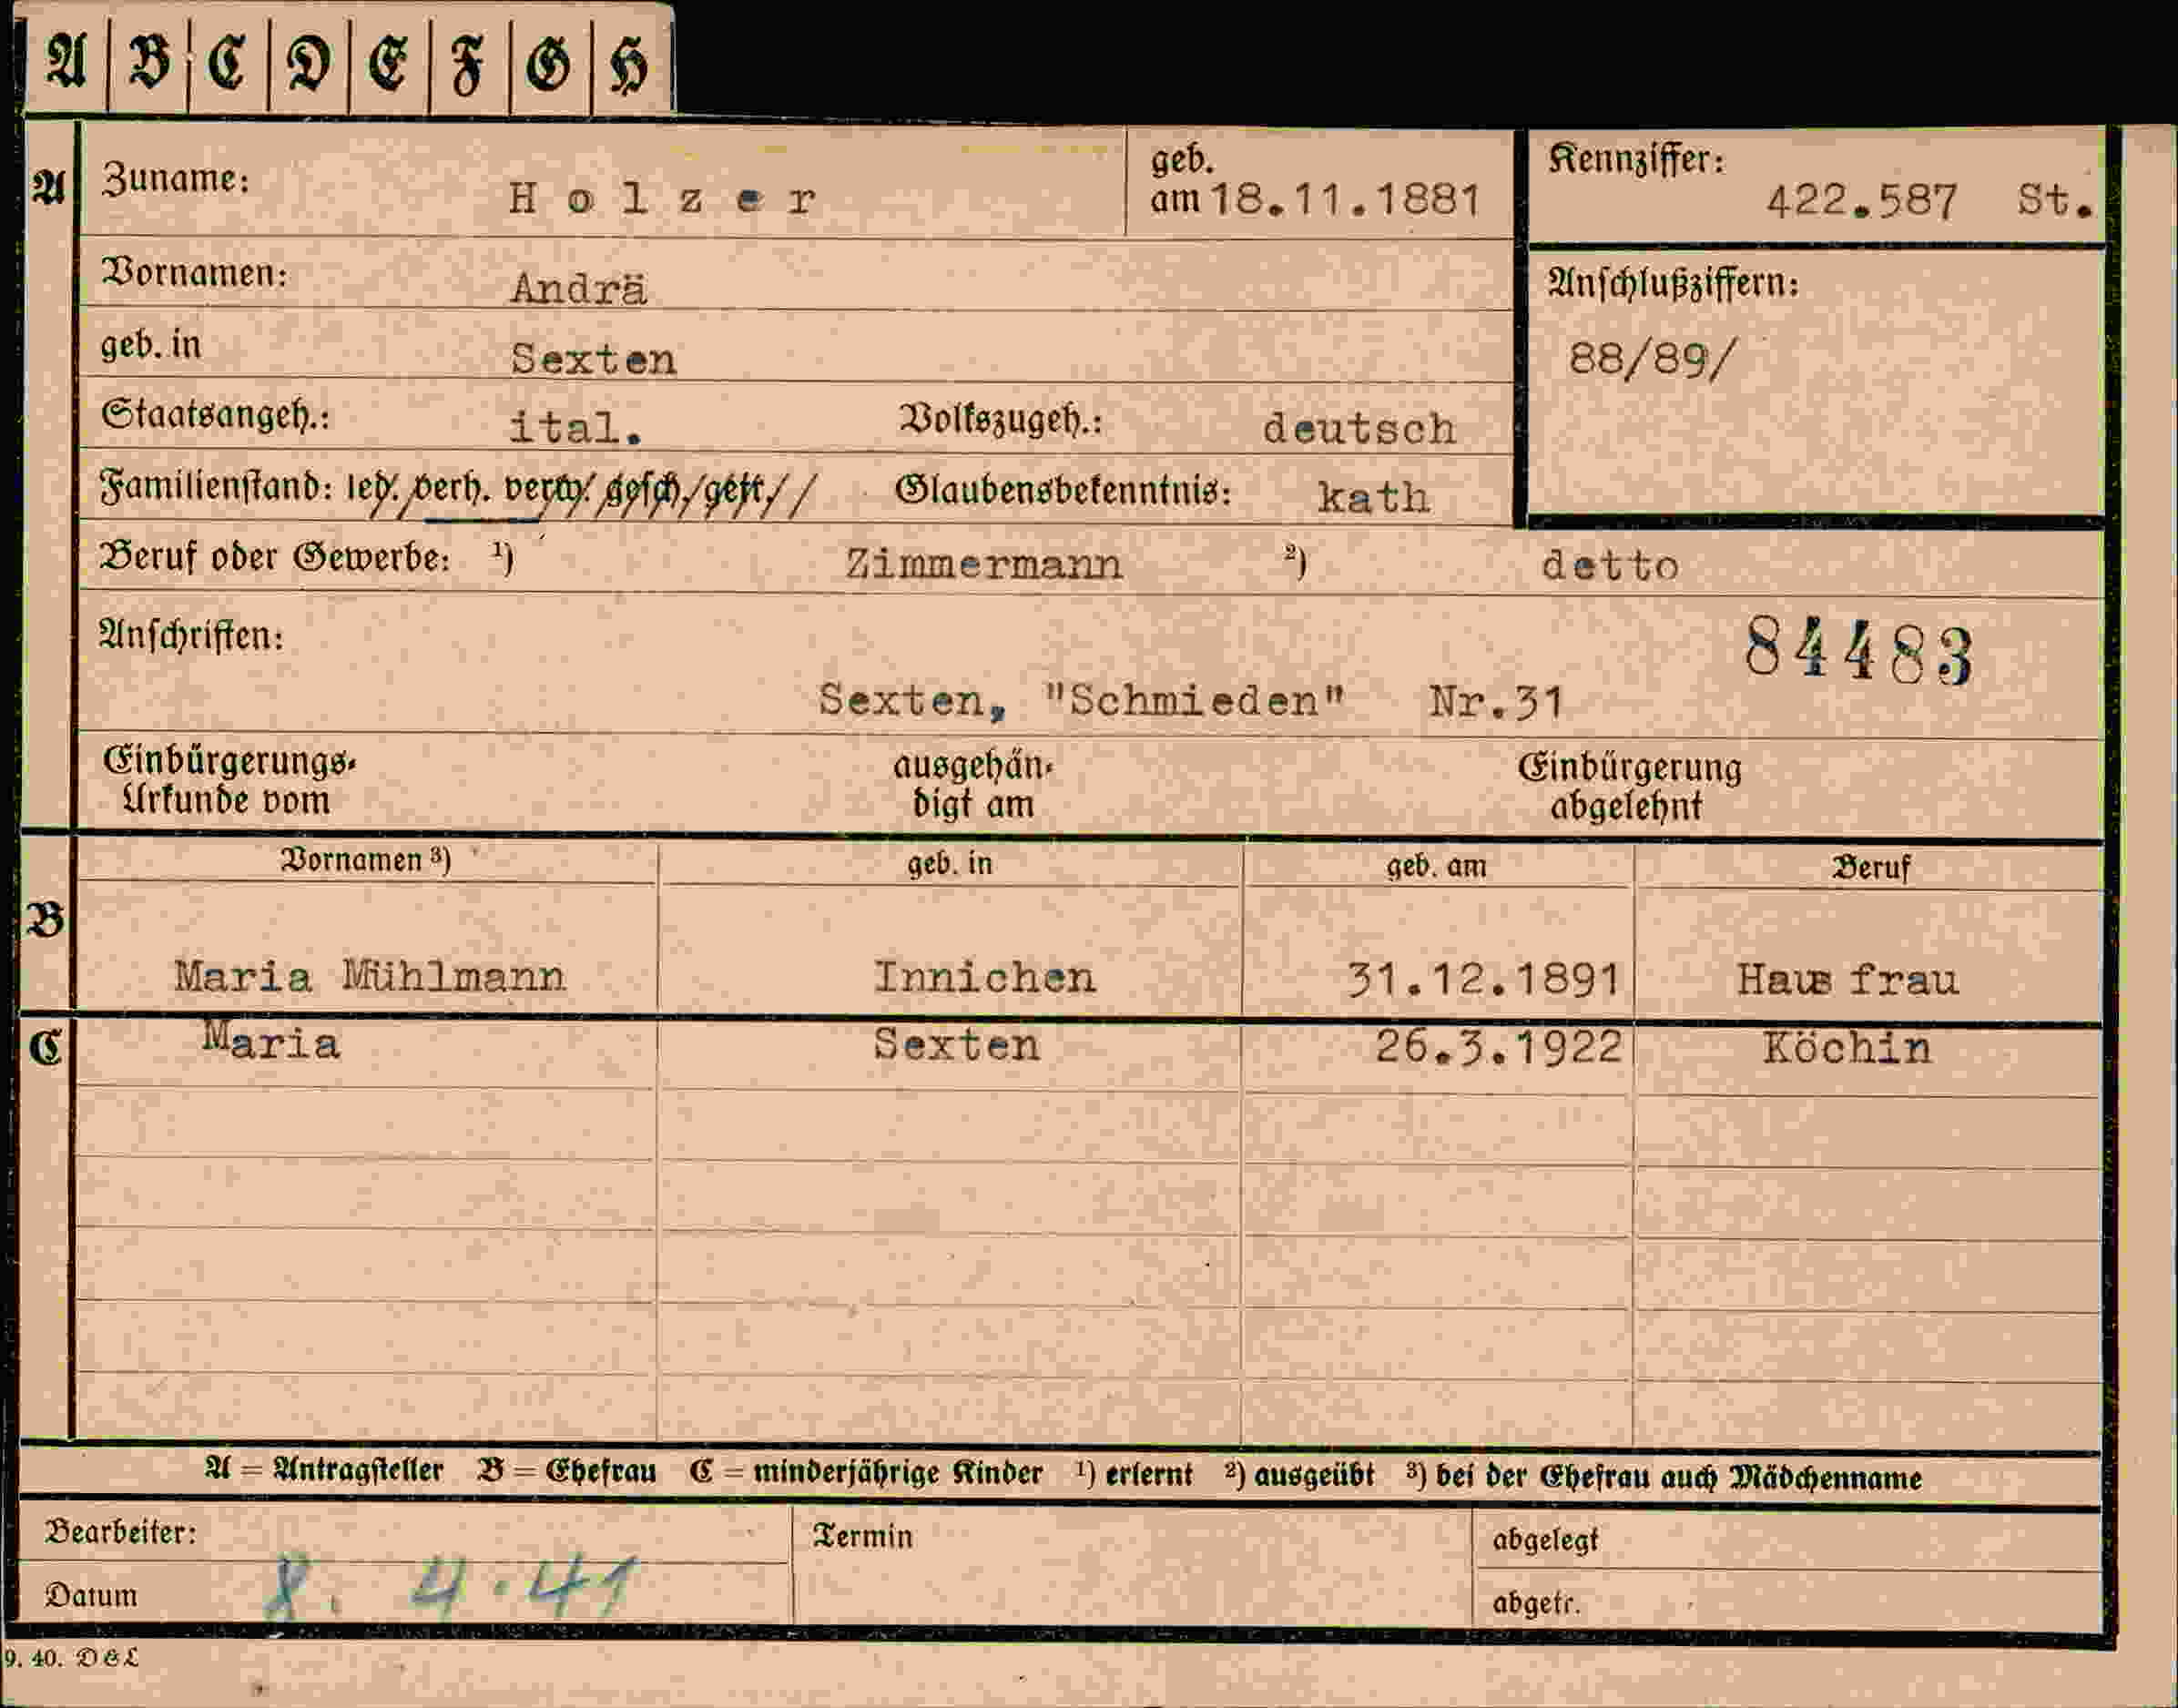 A B C D E F G H
A Zuname: Holzer geb. am 18.11.1881 Kennziffer: 422.587 St.
Vornamen: Andrä Anschlußziffern:
geb. in Sexten 88/89/
Staatsangeh.: ital. Volkszugeh.: deutsch
Familienstand: led. verh. verw. gesch. getr. Glaubensbekenntnis: kath
Beruf oder Gewerbe: ¹) Zimmermann ²) detto
Anschriften: 84483
Sexten, "Schmieden" Nr.31
Einbürgerungs-Urkunde vom ausgehändigt am Einbürgerung abgelehnt
Vornamen ³) geb. in geb. am Beruf
B Maria Mühlmann Innichen 31.12.1891 Hausfrau
C Maria Sexten 26.3.1922 Köchin
A = Antragsteller B = Ehefrau C = minderjährige Kinder ¹) erlernt ²) ausgeübt ³) bei der Ehefrau auch Mädchenname
Bearbeiter: Termin abgelegt
Datum 8. 4. 41 abgetr.
9. 40. D&L